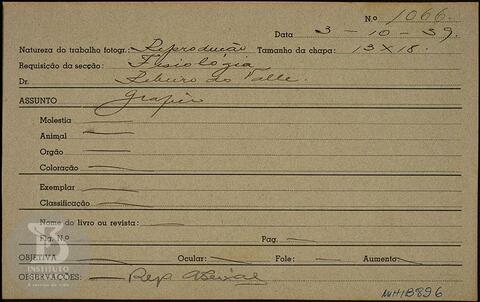 N.º 1066.
Data 3 - 10 - 39.
Natureza do trabalho fotogr.: Reprodução Tamanho da chapa: 13 x 18.
Requisição da secção: Fisiológia
Dr. Ribeiro do Valle.
ASSUNTO
Molestia
Animal
Orgão
Coloração
Exemplar
Classificação
Nome do livro ou revista:
Fig. N.º Pag.
OBJETIVA Ocular: Fole: Aumento:
OBSERVAÇÕES: Rep.
INSTITUTO
A serviço da vida